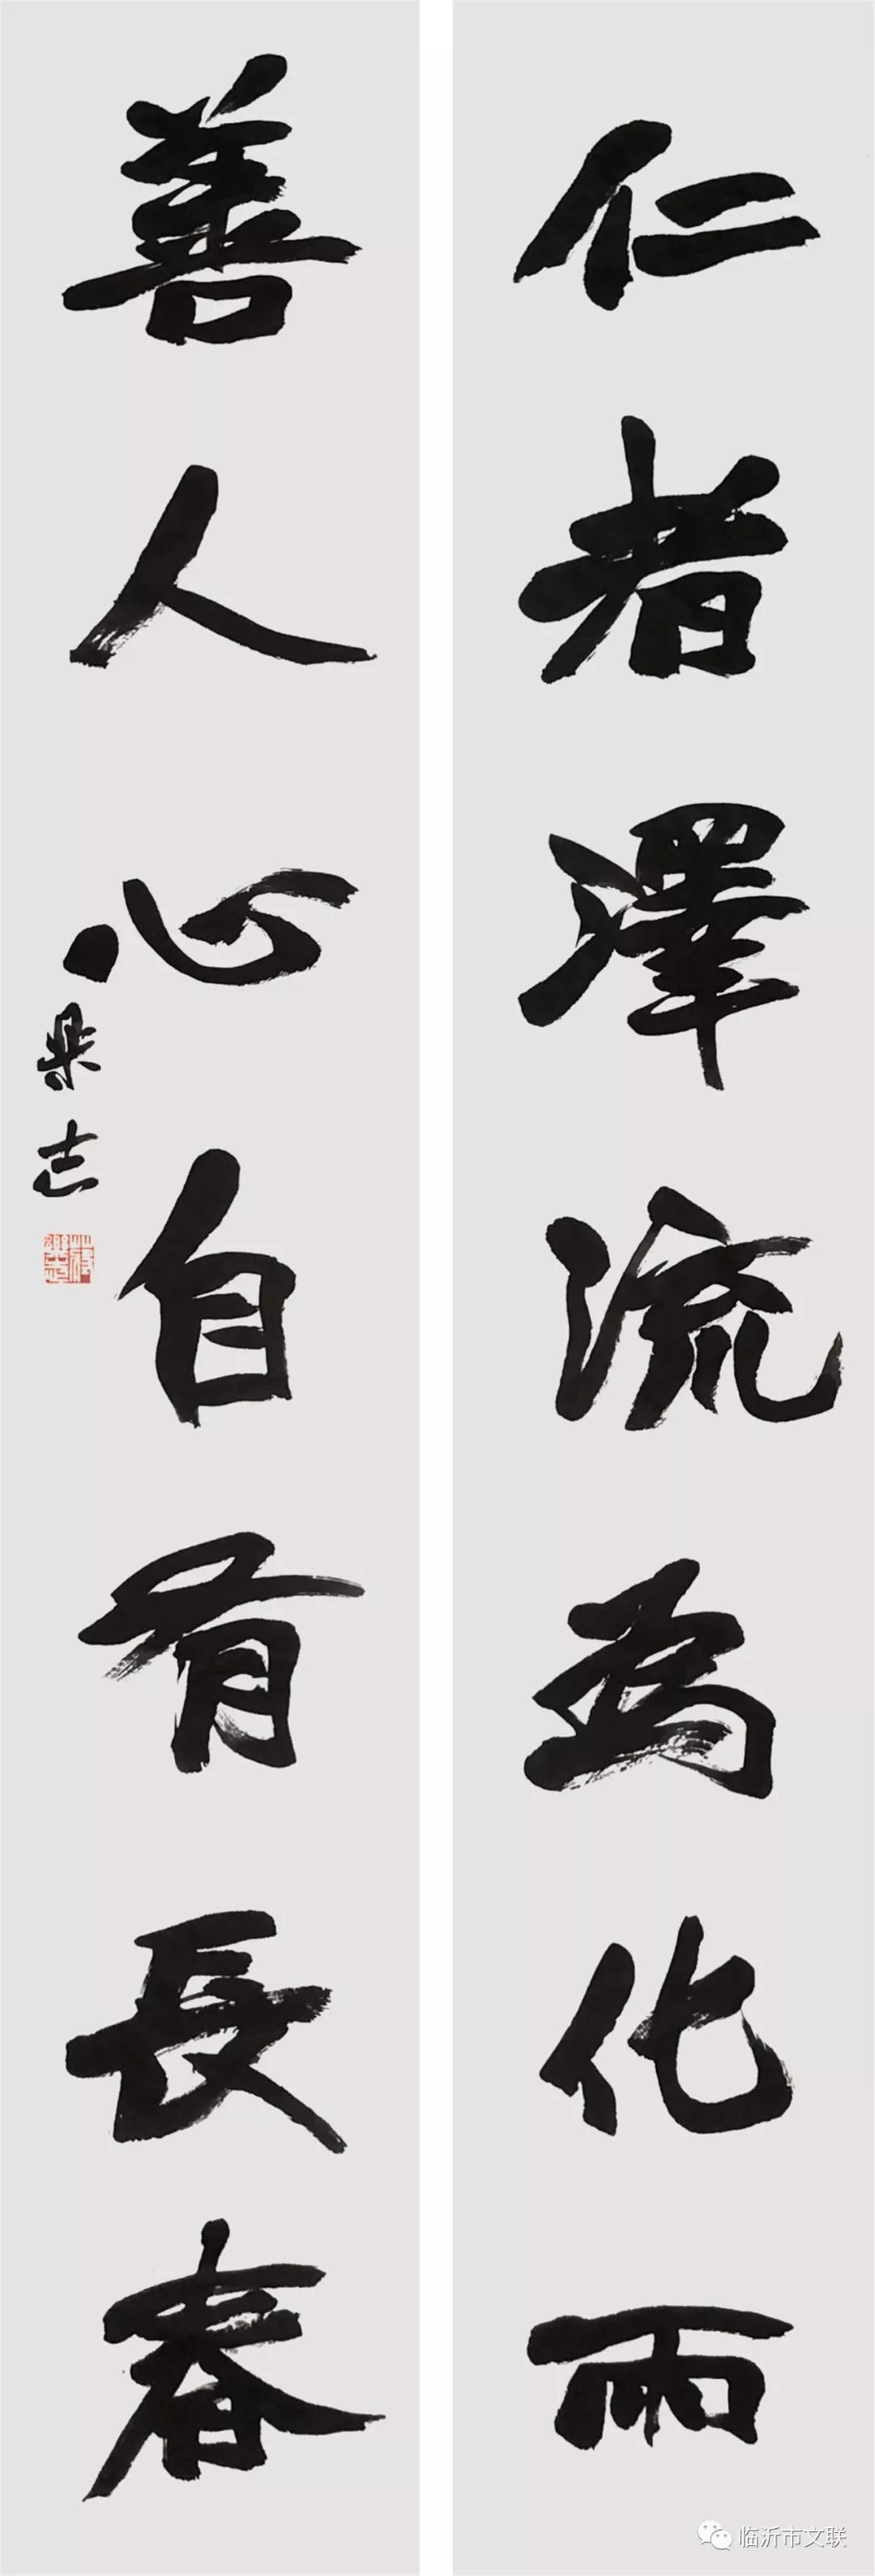 仁者澤流為化雨
善人心自有長春
樂志
临沂市文联